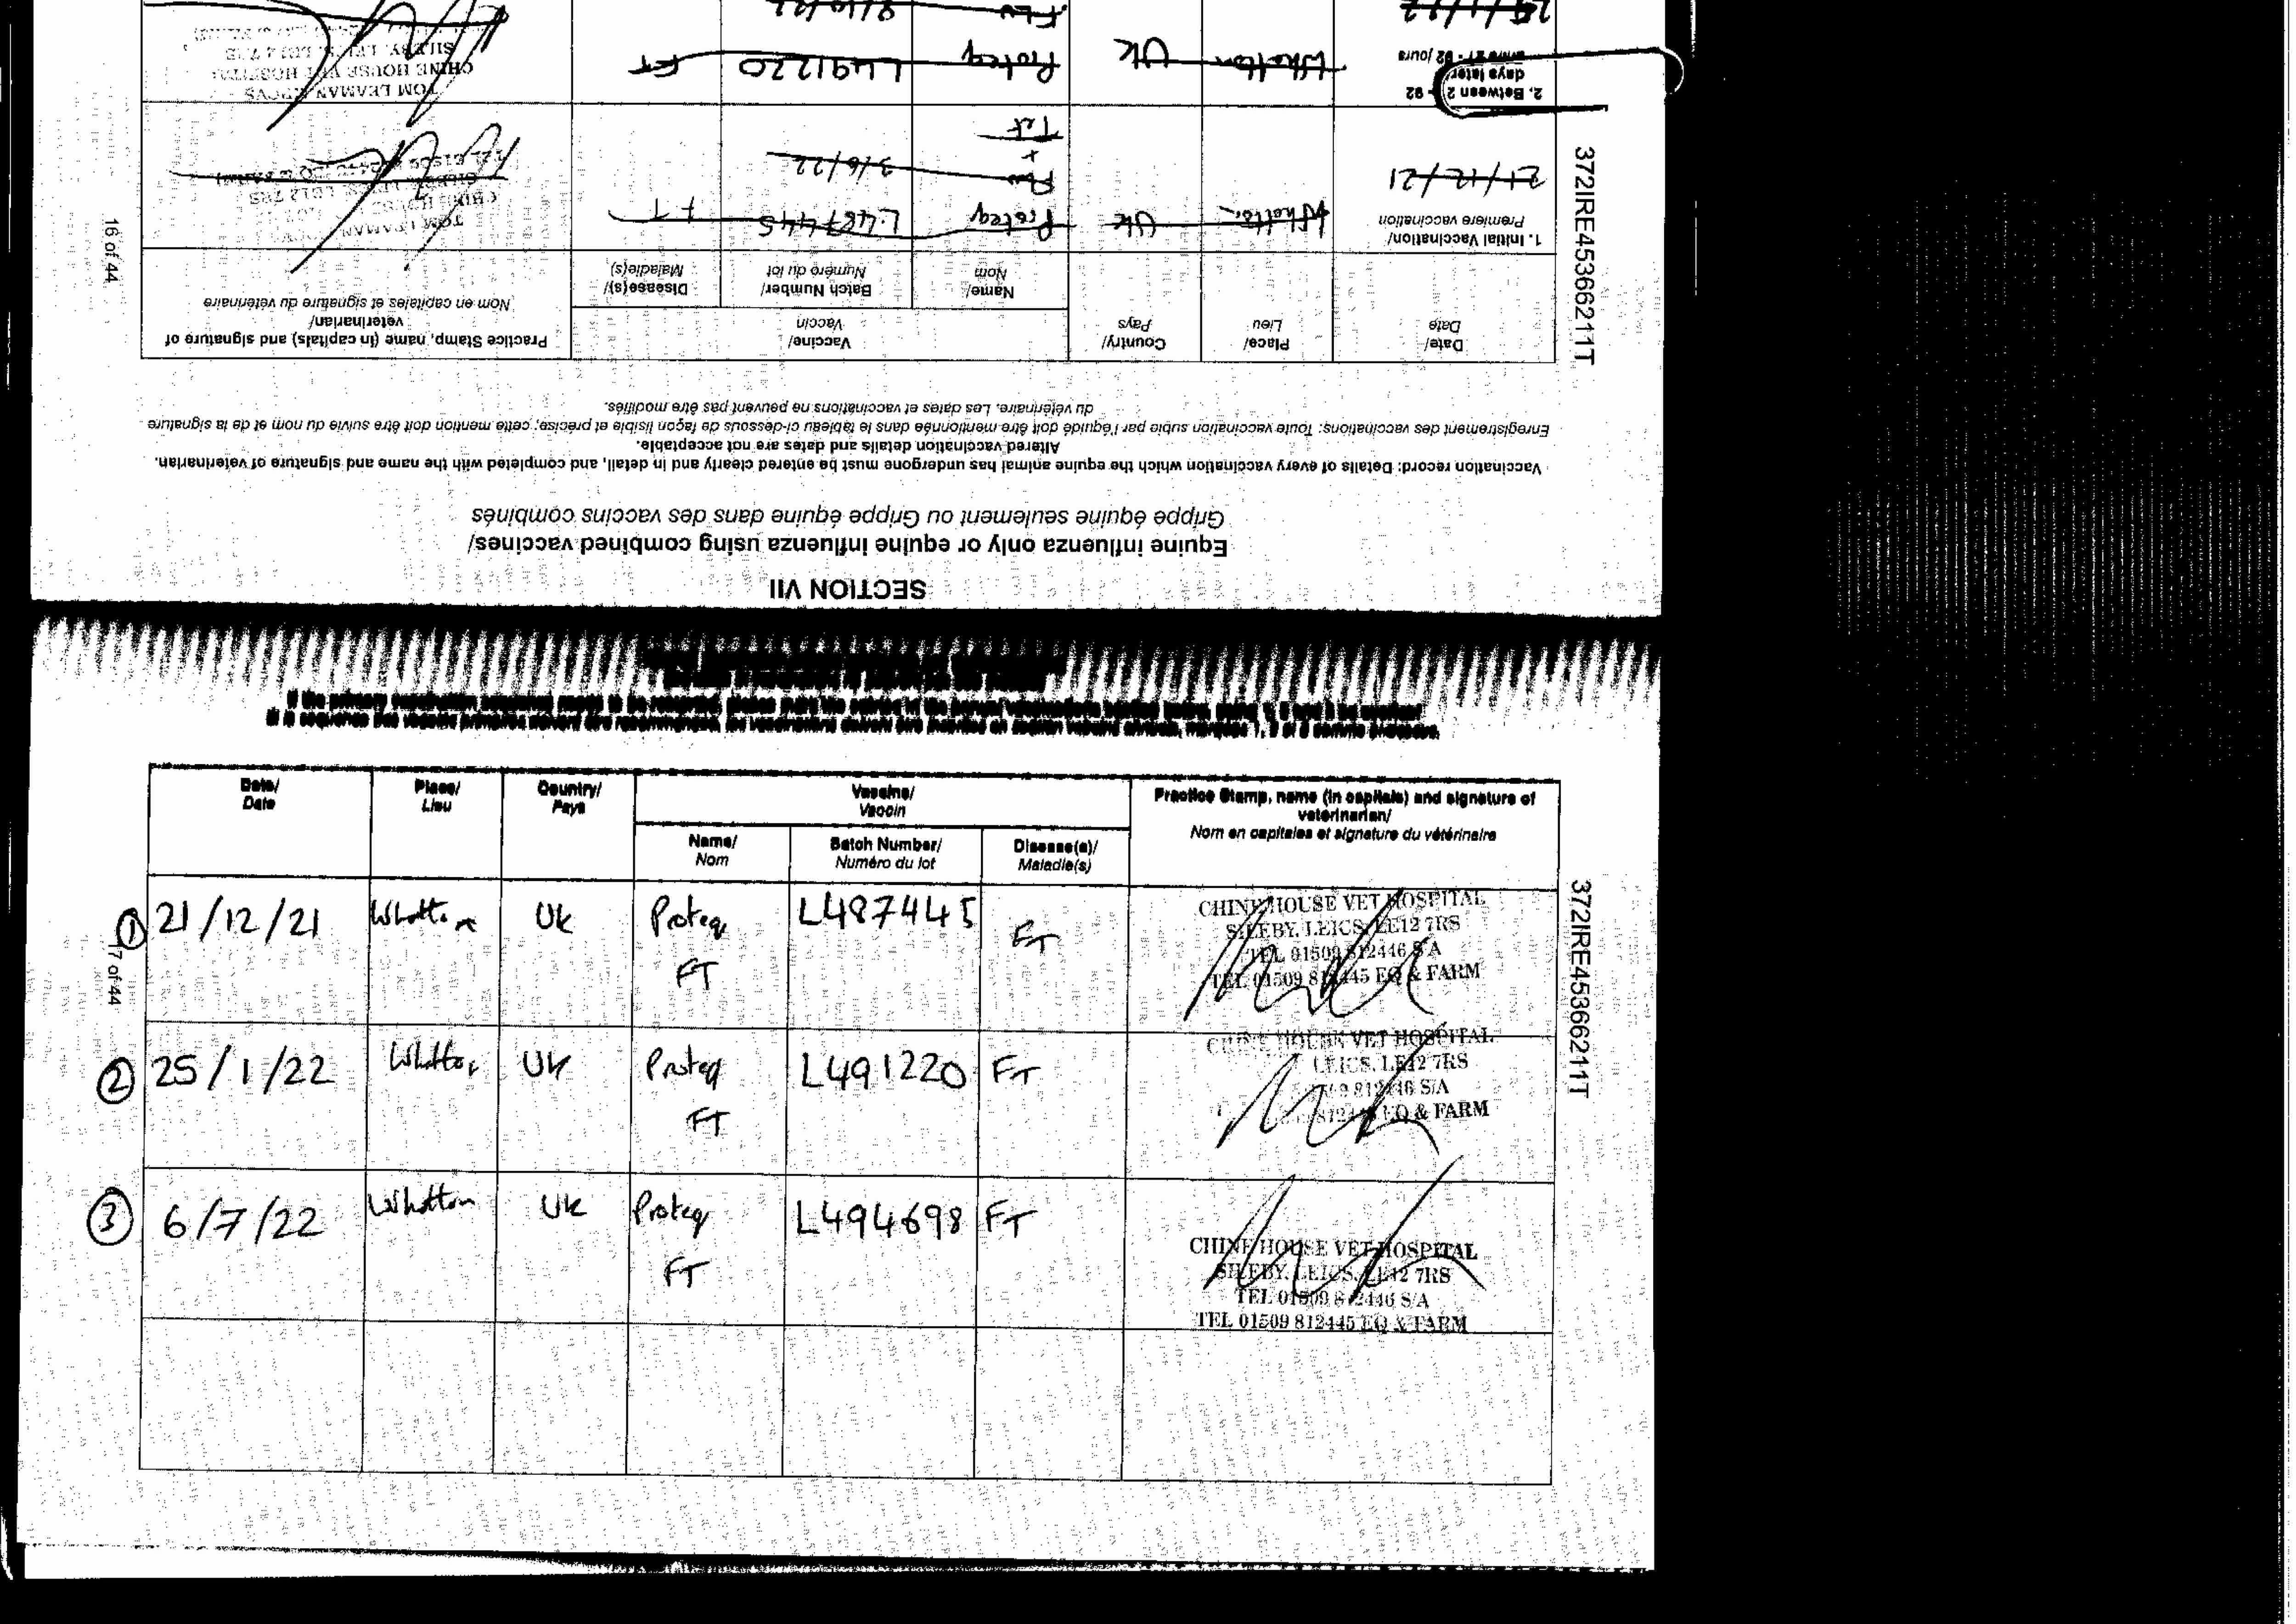 SECTION VII
Equine influenza only or equine influenza using combined vaccines/
Grippe équine seulement ou Grippe équine dans des vaccins combinés
Vaccination record: Details of every vaccination which the equine animal has undergone must be entered clearly and in detail, and completed with the name and signature of veterinarian.
Altered vaccination details and dates are not acceptable.
Enregistrement des vaccinations: Toute vaccination subie par l'équidé doit être mentionnée dans le tableau ci-dessous de façon lisible et précise; cette mention doit être suivie du nom et de la signature
du vétérinaire. Les dates et vaccinations ne peuvent pas être modifiés.
Date/ Date
Place/ Lieu
Country/ Pays
Vaccine/ Vaccin
Name/ Nom
Batch Number/ Numéro du lot
Disease(s)/ Maladie(s)
Practice Stamp, name (in capitals) and signature of
veterinarian/
Nom en capitales et signature du vétérinaire
1. Initial Vaccination/
Première vaccination
21/12/21
Whatton UK Proteq L487445 FT
Flu 3/6/22
+
Tet
TOM LEAMAN
2. Between 2 - 92
days later
- 92 jours
Whatton UK Proteq L491220 FT
Flu
TOM LEAMAN
CHINE HOUSE VET HOSPITAL
16 of 44
372IRE45366211T
Date/ Date
Place/ Lieu
Country/ Pays
Vaccine/ Vaccin
Name/ Nom
Batch Number/ Numéro du lot
Disease(s)/ Maladie(s)
Practice Stamp, name (in capitals) and signature of
veterinarian/
Nom en capitales et signature du vétérinaire
① 21/12/21 Whatton UK Proteq L487445 FT
FT
CHINE HOUSE VET HOSPITAL
SILEBY. LEICS. LE12 7RS
TEL 01509 812446 S/A
TEL 01509 812445 EQ & FARM
② 25/1/22 Whatton UK Proteq L491220 FT
FT
CHINE HOUSE VET HOSPITAL
LEICS. LE12 7RS
812446 S/A
EQ & FARM
③ 6/7/22 Whatton UK Proteq L494698 FT
FT
CHINE HOUSE VET HOSPITAL
SILEBY. LEICS. LE12 7RS
TEL 01509 812446 S/A
TEL 01509 812445 EQ & FARM
17 of 44
372IRE45366211T